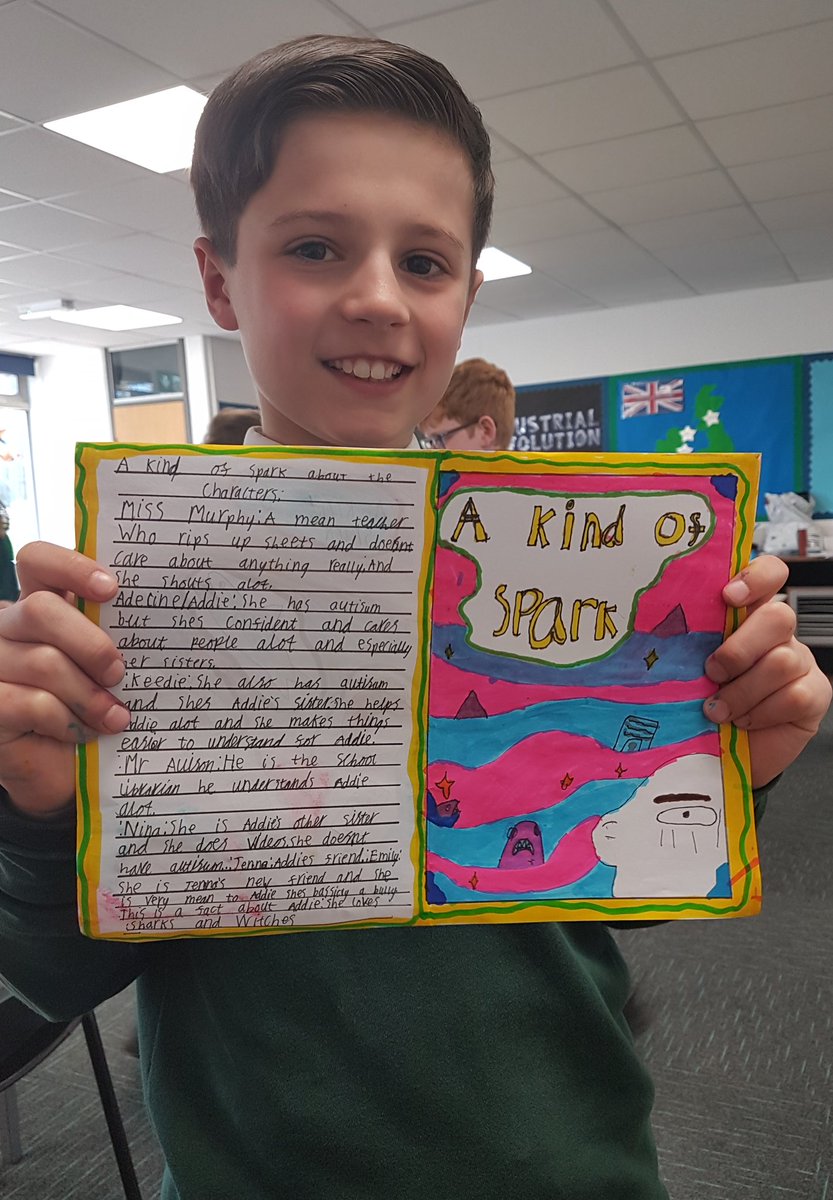 A kind of spark about the
Characters:
Miss Murphy:A mean teacher
Who rips up sheets and doesnt
care about anything really.And
She shouts alot.
Adeline/Addie:She has autism
but shes confident and cares
about people alot and especially
her sisters.
:Keedie:She also has autism
and shes Addie's sister.she helps
Addie alot and she makes things
easier to understand for Addie.
:Mr Allison:He is the school
librarian he understands Addie
alot.
:Nina:She is Addie's other sister
and she does videos.she doesnt
have autism.:Jenna:Addies friend:Emily:
She is Jenna's new friend and she
is very mean to Addie shes bassicly a bully
This is a fact about Addie:She loves
sharks and witches
A kind of
spark
USTRIAL
OLUTION